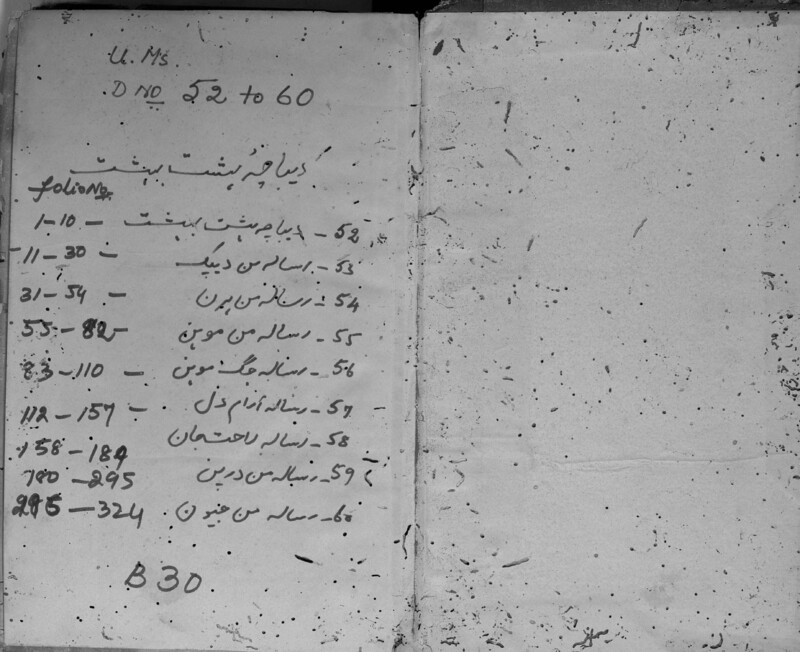 U. Ms.
D No 52 to 60
دیباچہ ہشت بہشت
folio No
52 - دیباچہ ہشت بہشت - 1-10
53 - رسالہ من دیپک - 11-30
54 - رسالہ من ہرن - 31-54
55 - رسالہ من موہن 55-82
56 - رسالہ جگ موہن - 83-110
57 - رسالہ آرام دل - 112-157
58 - رسالہ راحت جان 158-189
59 - رسالہ من درپن 190-295
60 - رسالہ من جیون 295-324
B 30